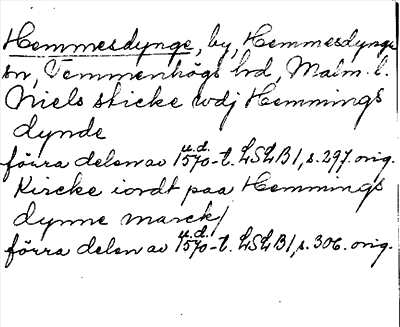 Hemmesdynge, by, Hemmesdynge
sn, Vemmenhögs hd, Malm. l.
Niels sticke wdj Hemmings
dynde
förra delen av u.d. 1570-t. LSLB1, s. 297. orig.
Kircke iordt paa Hemmings
dynne marck/
förra delen av u.d. 1570-t. LSLB1, s. 306. orig.